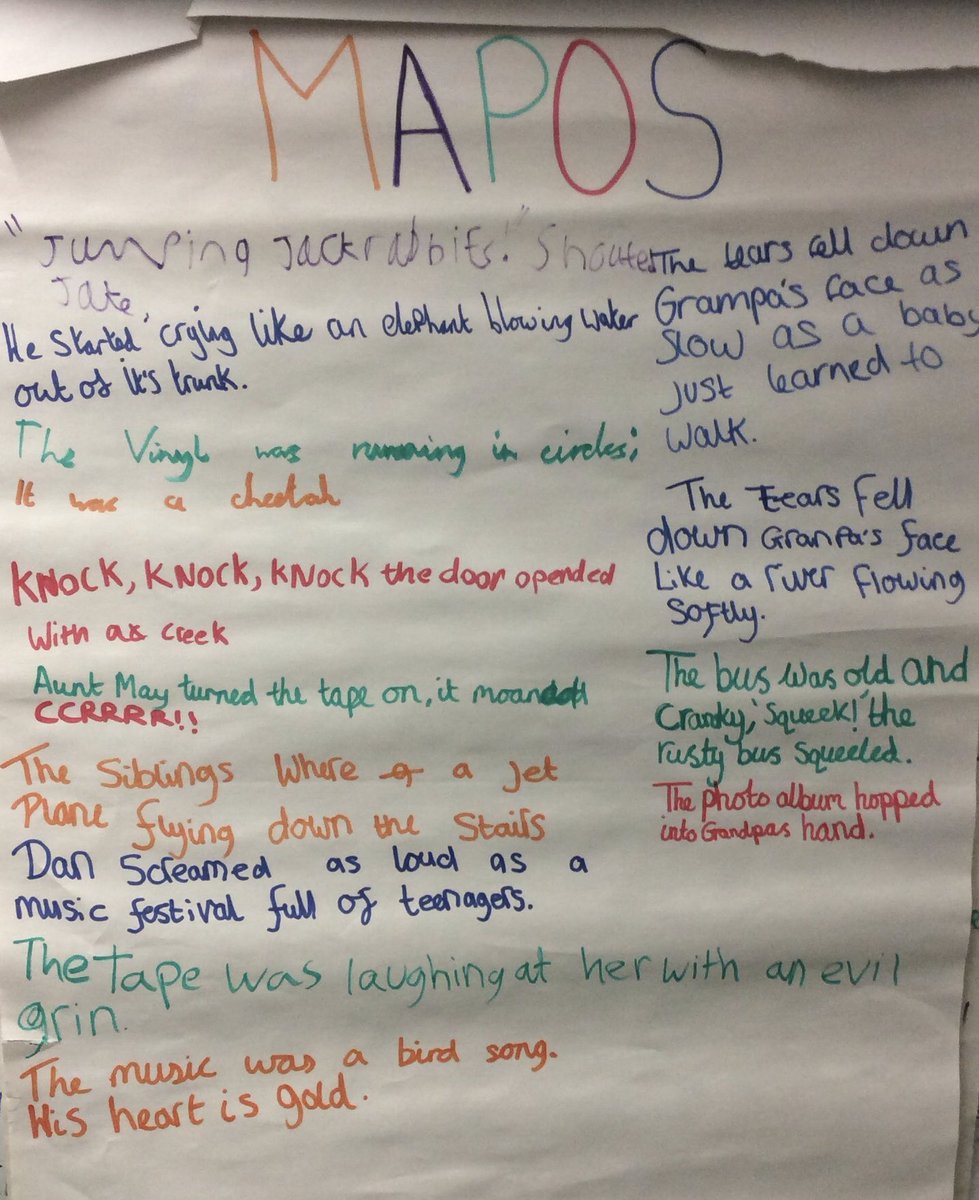 MAPOS
"Jumping Jackrabbits." Shouted
Jake,
He started crying like an elephant blowing water
out of it's trunk.
The Vinyl was running in circles;
It was a cheetah
KNOCK, KNOCK, KNOCK the door opended
With a creek
Aunt May turned the tape on, it moaned
CCRRRR!!
The Siblings Where a Jet
Plane flying down the Stairs
Dan Screamed as loud as a
music festival full of teenagers.
The tape was laughing at her with an evil
grin.
The music was a bird song.
His heart is gold.
The tears fell down
Grampa's face as
slow as a baby
just learned to
walk.
The tears fell
down Granpa's face
Like a river flowing
Softly.
The bus was old and
Cranky, 'Squeek! the
rusty bus squeeled.
The photo album hopped
into Grandpas hand.